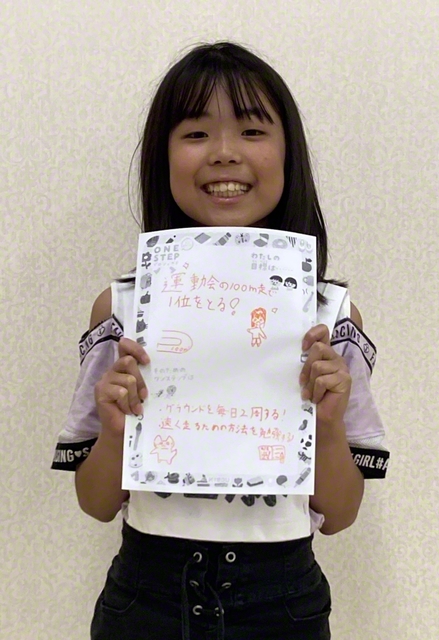 ONE
STEP
わたしの
目標は…
運動会の100m走で
1位をとる!
100m
そのための
ワンステップは
・グラウンドを毎日2周する!
速く走るための方法を勉強する!
GIRL#